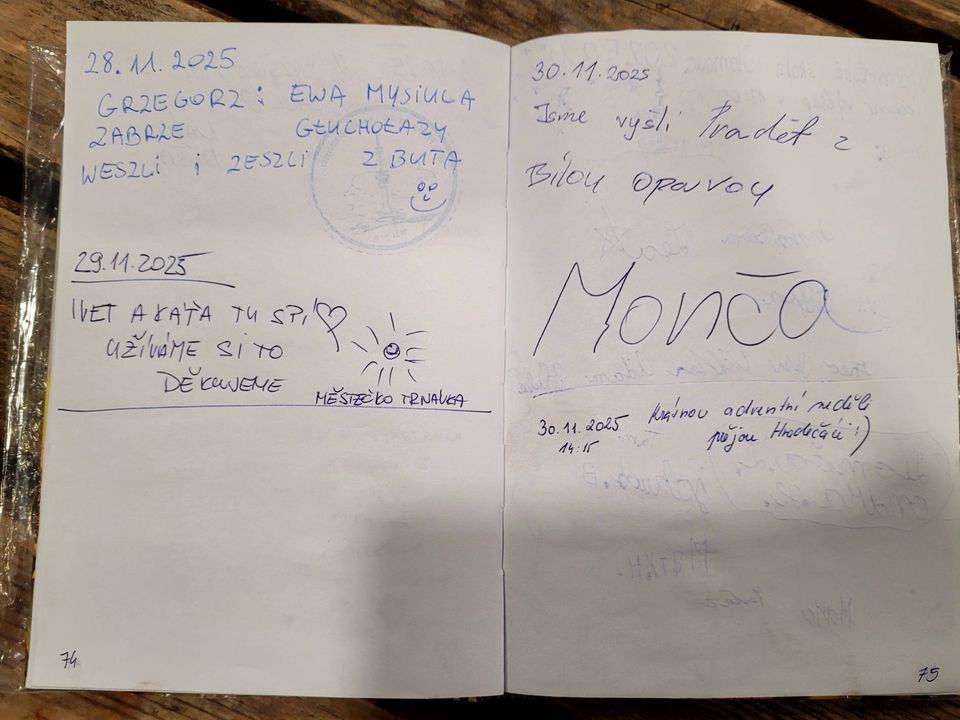 28.11.2025
GRZEGORZ i EWA MYSIULA
ZABRZE GŁUCHOŁAZY
WESZLI i ZESZLI Z BUTA
29.11.2025
IVET A KÁŤA TU SPÍ
UŽÍVÁME SI TO
DĚKUJEME
MĚSTEČKO TRNÁVKA
74
30.11.2025
Jsme vyšli Praděd z
Bílou Opavou
Monča
30.11.2025 Krásnou adventní neděli
14:15 přejou Hradečáči :)
75